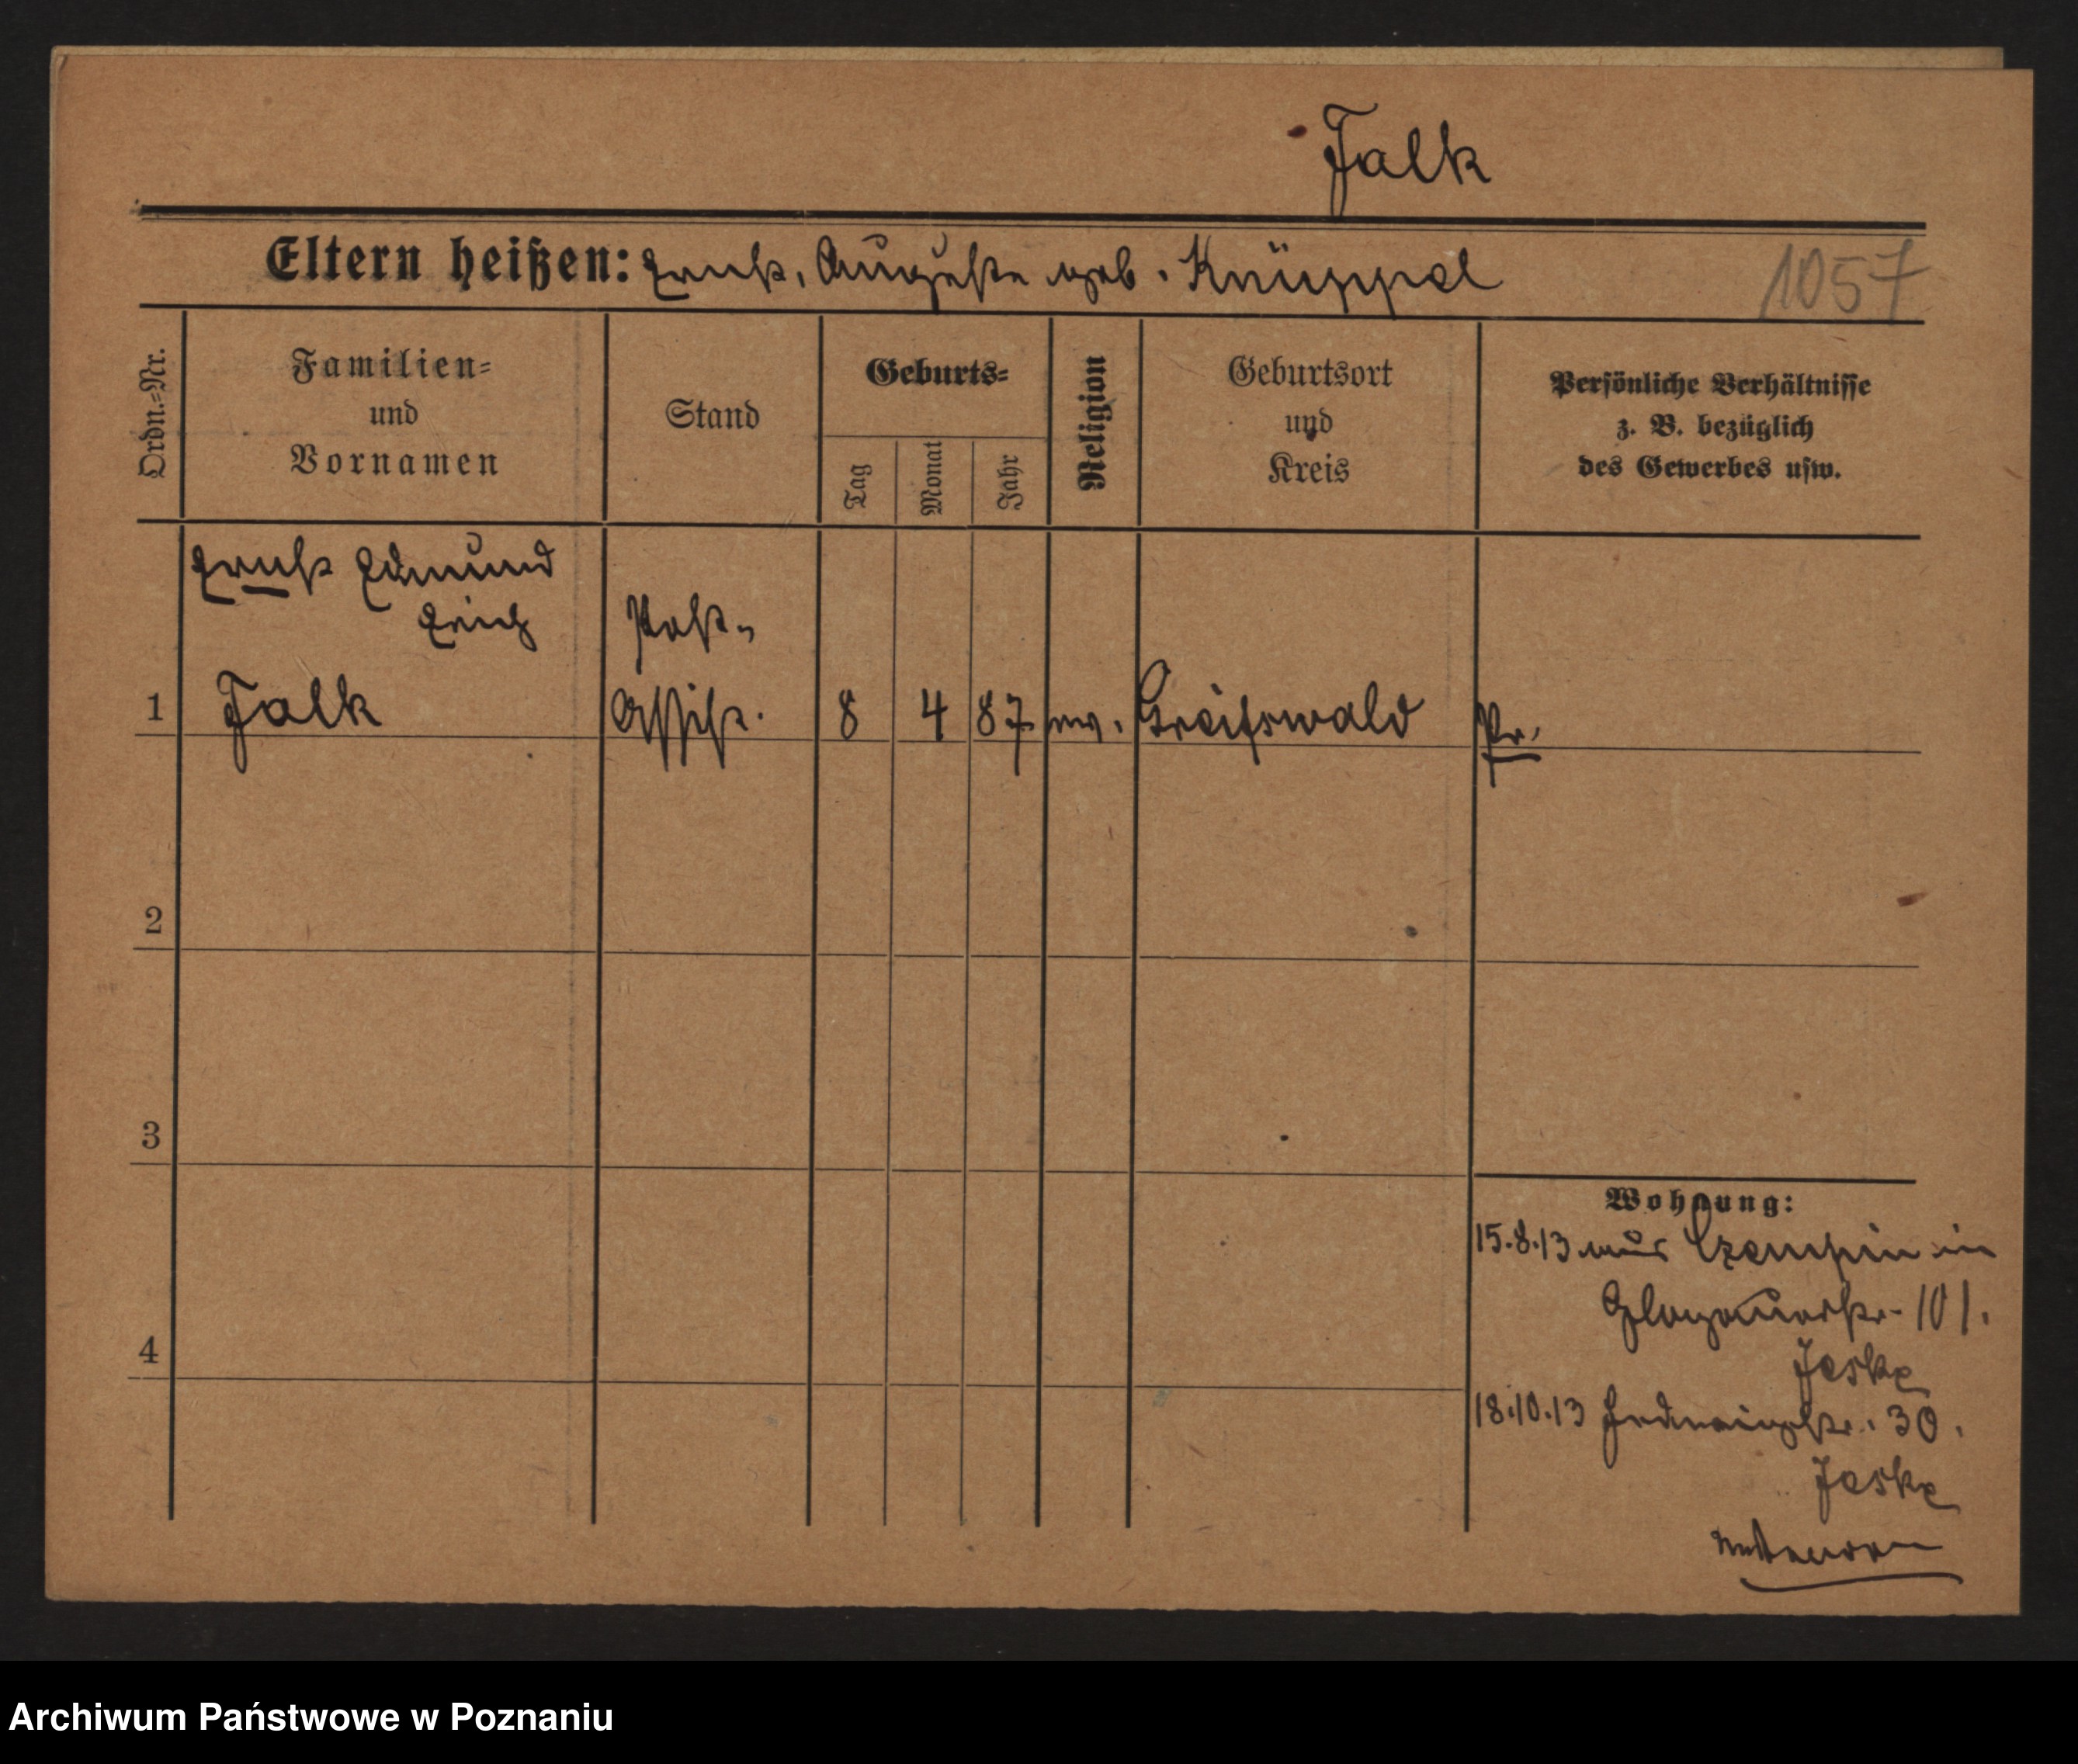 Falk
Eltern heißen: Ernst, Auguste geb. Knüppel
1057
Ordn.=Nr.
Familien=
und
Vornamen
Stand
Geburts=
Tag
Monat
Jahr
Religion
Geburtsort
und
Kreis
Persönliche Verhältnisse
z. B. bezüglich
des Gewerbes usw.
Ernst Edmund
Erich
Post-
1 Falk Assist. 8 4 87 ev. Greifswald Pr.
2
3
4
Wohnung:
15.8.13 aus Czempin in
Glogauerstr. 101.
Jeske
18.10.13 Hedwigstr. 30.
Jeske
Archiwum Państwowe w Poznaniu